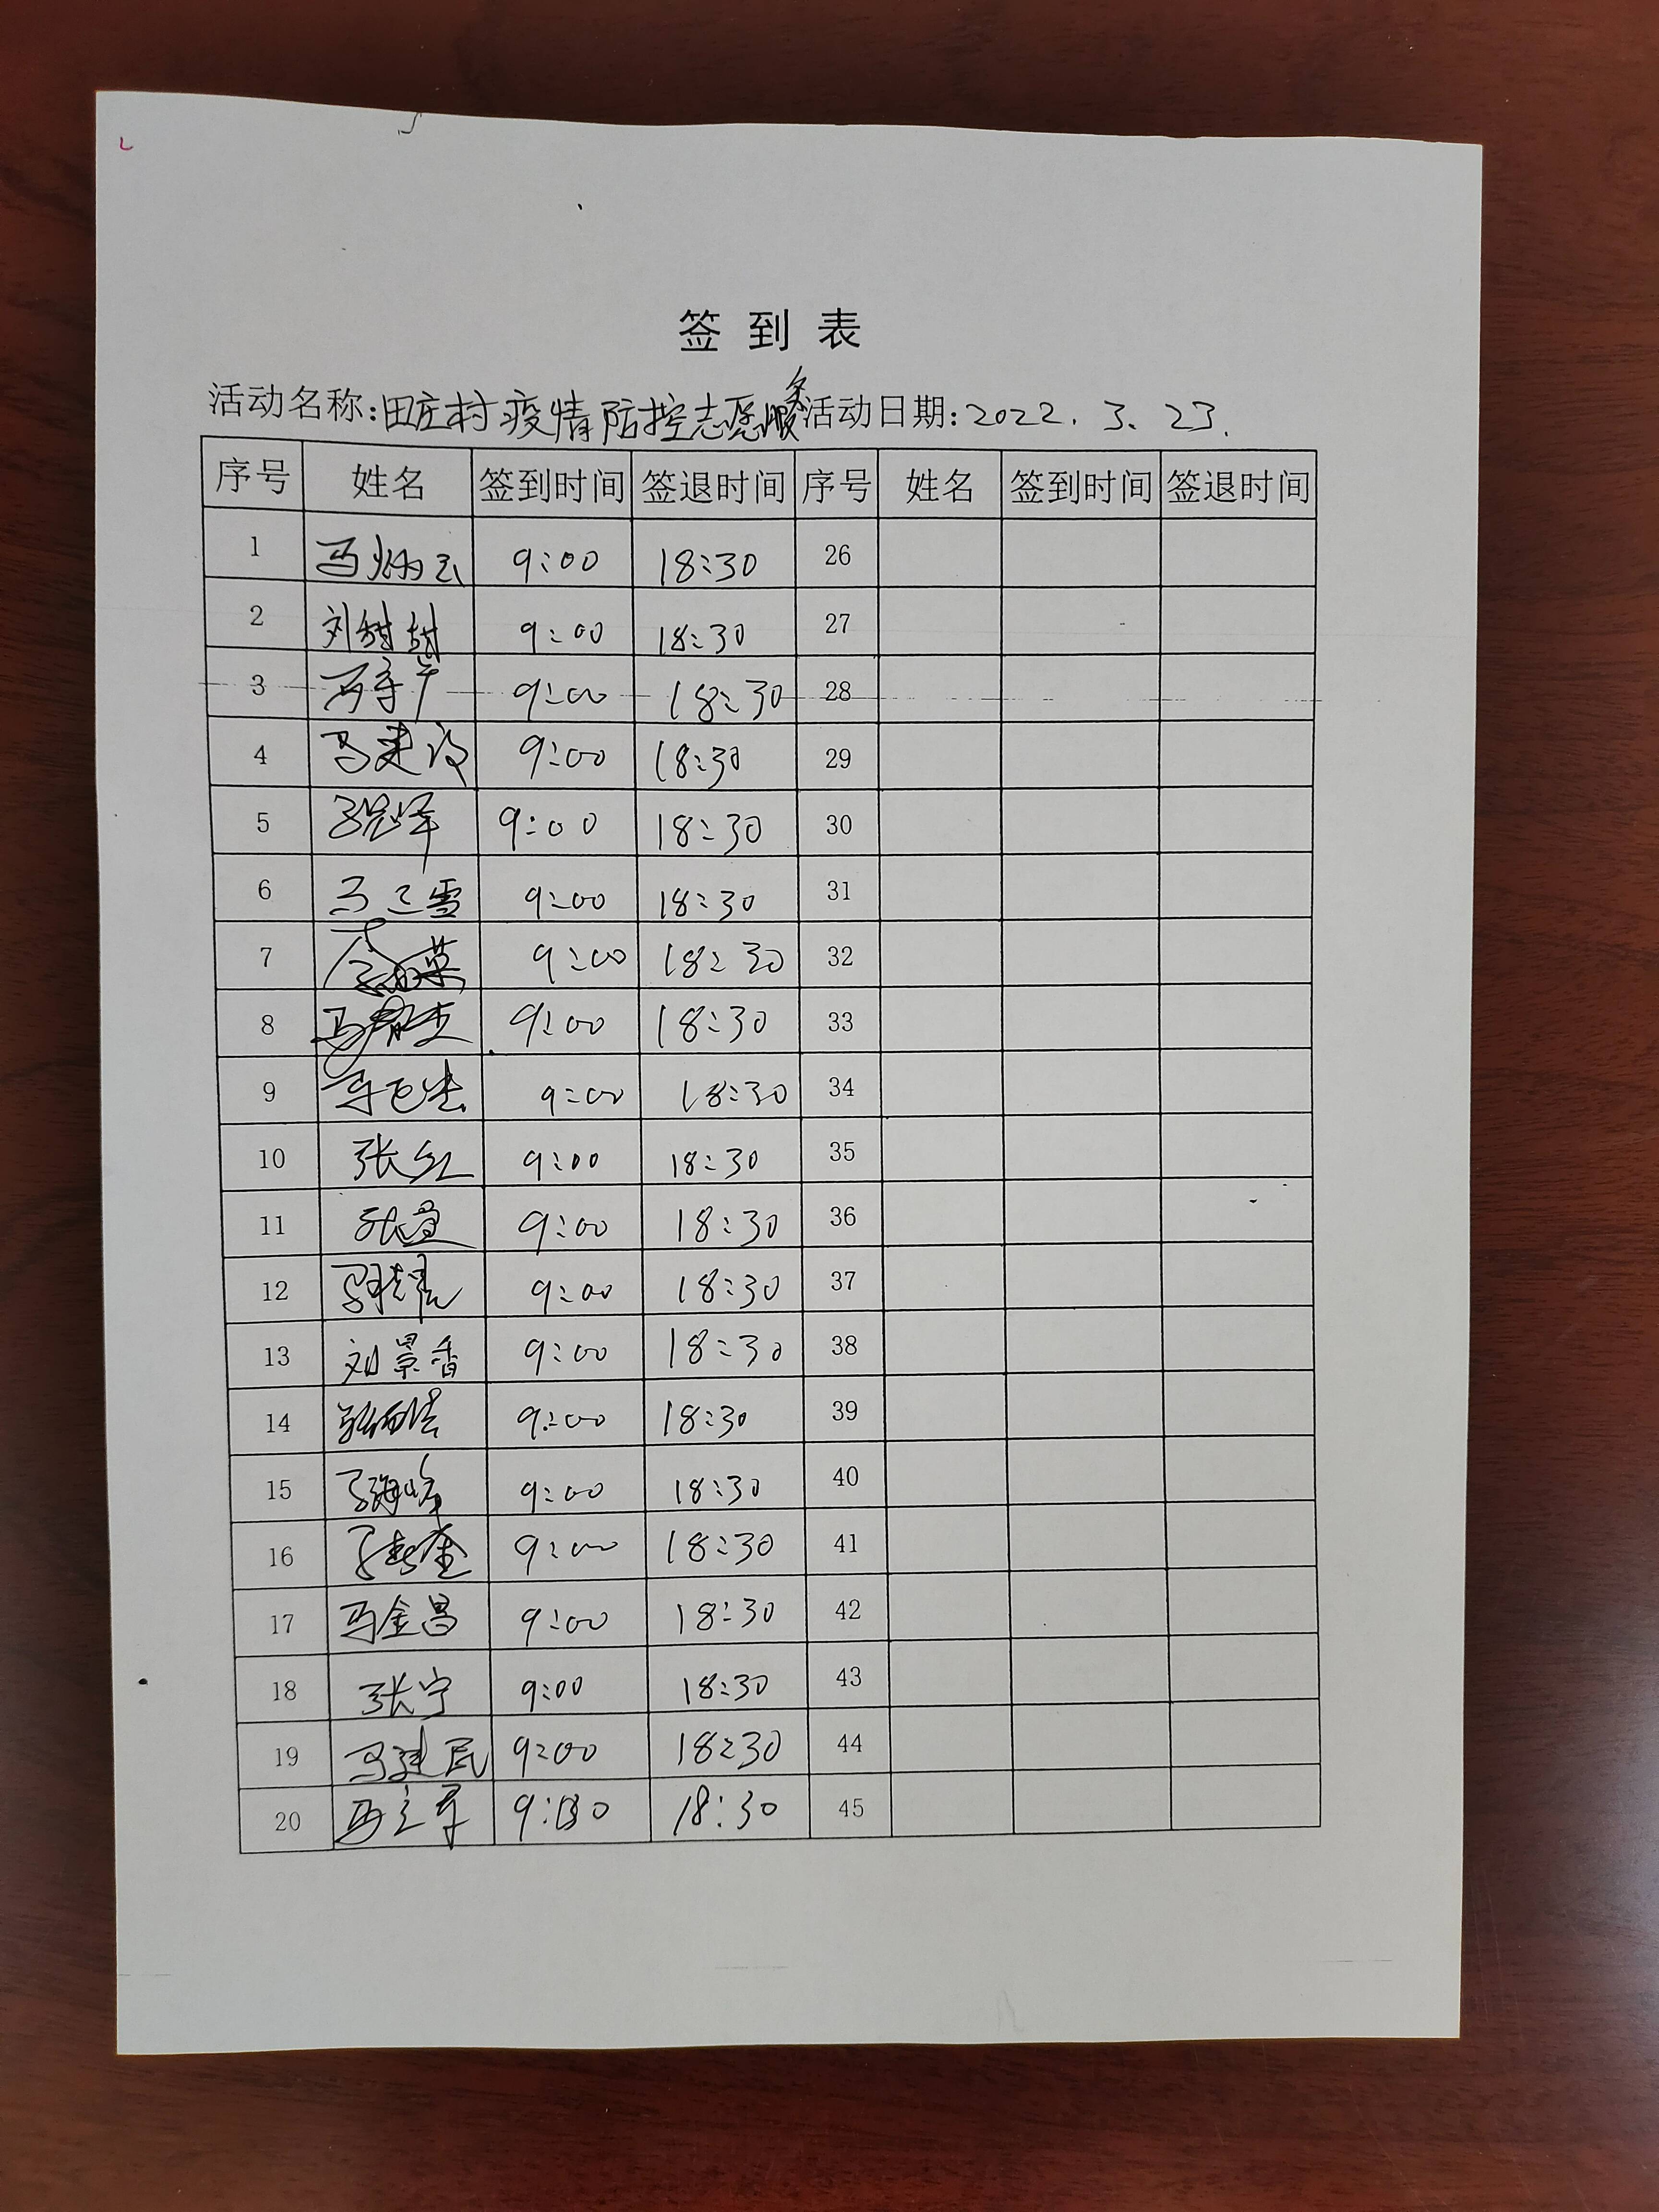 签到表
活动名称:田庄村疫情防控志愿服务 活动日期:2022.3.23.
序号 姓名 签到时间 签退时间 序号 姓名 签到时间 签退时间
1 马炳云 9:00 18:30 26
2 刘甜甜 9:00 18:30 27
3 9:00 18:30 28
4 马建设 9:00 18:30 29
5 9:00 18:30 30
6 9:00 18:30 31
7 9:00 18:30 32
8 9:00 18:30 33
9 9:00 18:30 34
10 张红 9:00 18:30 35
11 9:00 18:30 36
12 9:00 18:30 37
13 刘景香 9:00 18:30 38
14 9:00 18:30 39
15 马海峰 9:00 18:30 40
16 9:00 18:30 41
17 马金昌 9:00 18:30 42
18 张宁 9:00 18:30 43
19 马建民 9:00 18:30 44
20 马立军 18:30 45